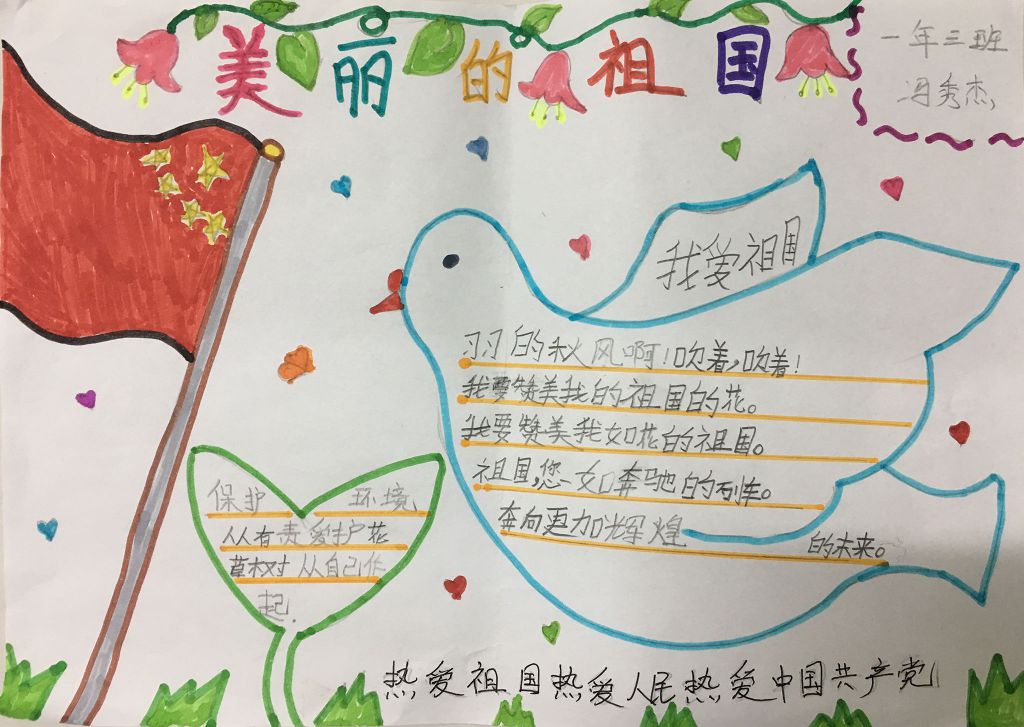 美丽的祖国
一年三班
冯秀杰
我爱祖国
习习的秋风啊!吹着,吹着!
我要赞美我的祖国的花。
我要赞美我如花的祖国。
祖国,您一如奔驰的列车。
奔向更加辉煌的未来。
保护环境
从有责爱护花
草树从自己作
起.
热爱祖国热爱人民热爱中国共产党